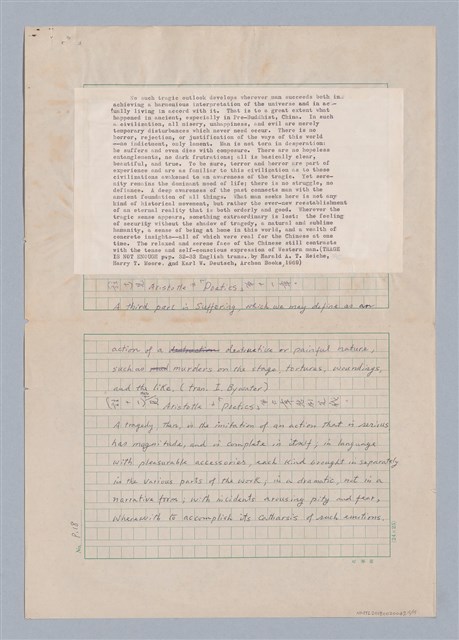 No such tragic outlook develops wherever man succeeds both in
achieving a harmonious interpretation of the universe and in ac-
tually living in accord with it. That is to a great extent what
happened in ancient, especially in Pre-Buddhist, China. In such
a civilization, all misery, unhappiness, and evil are merely
temporary disturbances which never need occur. There is no
horror, rejection, or justification of the ways of this world
——no indictment, only lament. Man is not torn in desperation:
he suffers and even dies with composure. There are no hopeless
entanglements, no dark frutrations; all is basically clear,
beautiful, and true. To be sure, terror and horror are part of
experience and are as familiar to this civilization as to those
civilizations awakened to an awareness of the tragic. Yet sere-
nity remains the dominant mood of life; there is no struggle, no
defiance. A deep awareness of the past connects man with the
ancient foundation of all things. What man seeks here is not any
kind of historical movement, but rather the ever-new reestablishment
of an eternal reality that is both orderly and good. Wherever the
tragic sense appears, something extraordinary is lost: the feeling
of security without the shadow of tragedy, a natural and sublime
humanity, a sense of being at home in this world, and a wealth of
concrete insights——all of which were real for the Chinese at one
time. The relaxed and serene face of the Chinese still contrasts
with the tense and self-conscious expression of Western man.(TRAGE
IS NOT ENOUGH pp. 32-33 English trans. by Harald A. T. Reiche,
Harry T. Moore, and Karl W. Deutsch, Archon Books,1969)
Aristotle Poetics
A third part is Suffering, which we may define as an
action of a destructive or painful nature,
such as murders on the stage, tortures, woundings,
and the like. (tran. I. Bywater)
Aristotle Poetics
A tragedy, then, is the imitation of an action that is serious
has magnitude, and is complete in itself; in language
with pleasurable accessories, each kind brought in separately
in the various parts of the work; in a dramatic, not in a
narrative form; with incidents arousing pity and fear,
wherewith to accomplish its catharsis of such emotions.
No. P.18